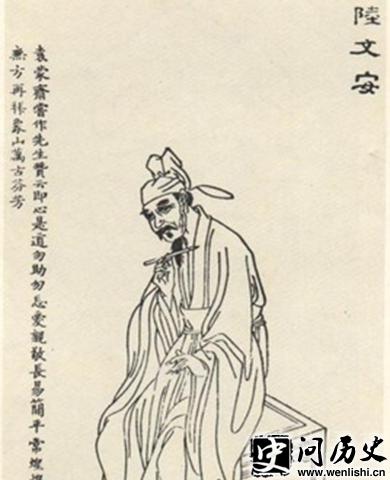 陸文安
袁蒙齋嘗作先生贊云即心是道勿助勿忘愛親敬長易簡平常煌煌
無方再拜象山萬古芬芳
史问历史
www.wenlishi.com